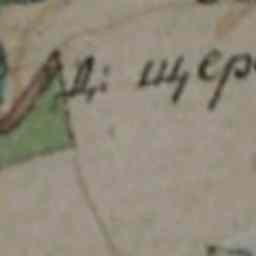 Д: щер